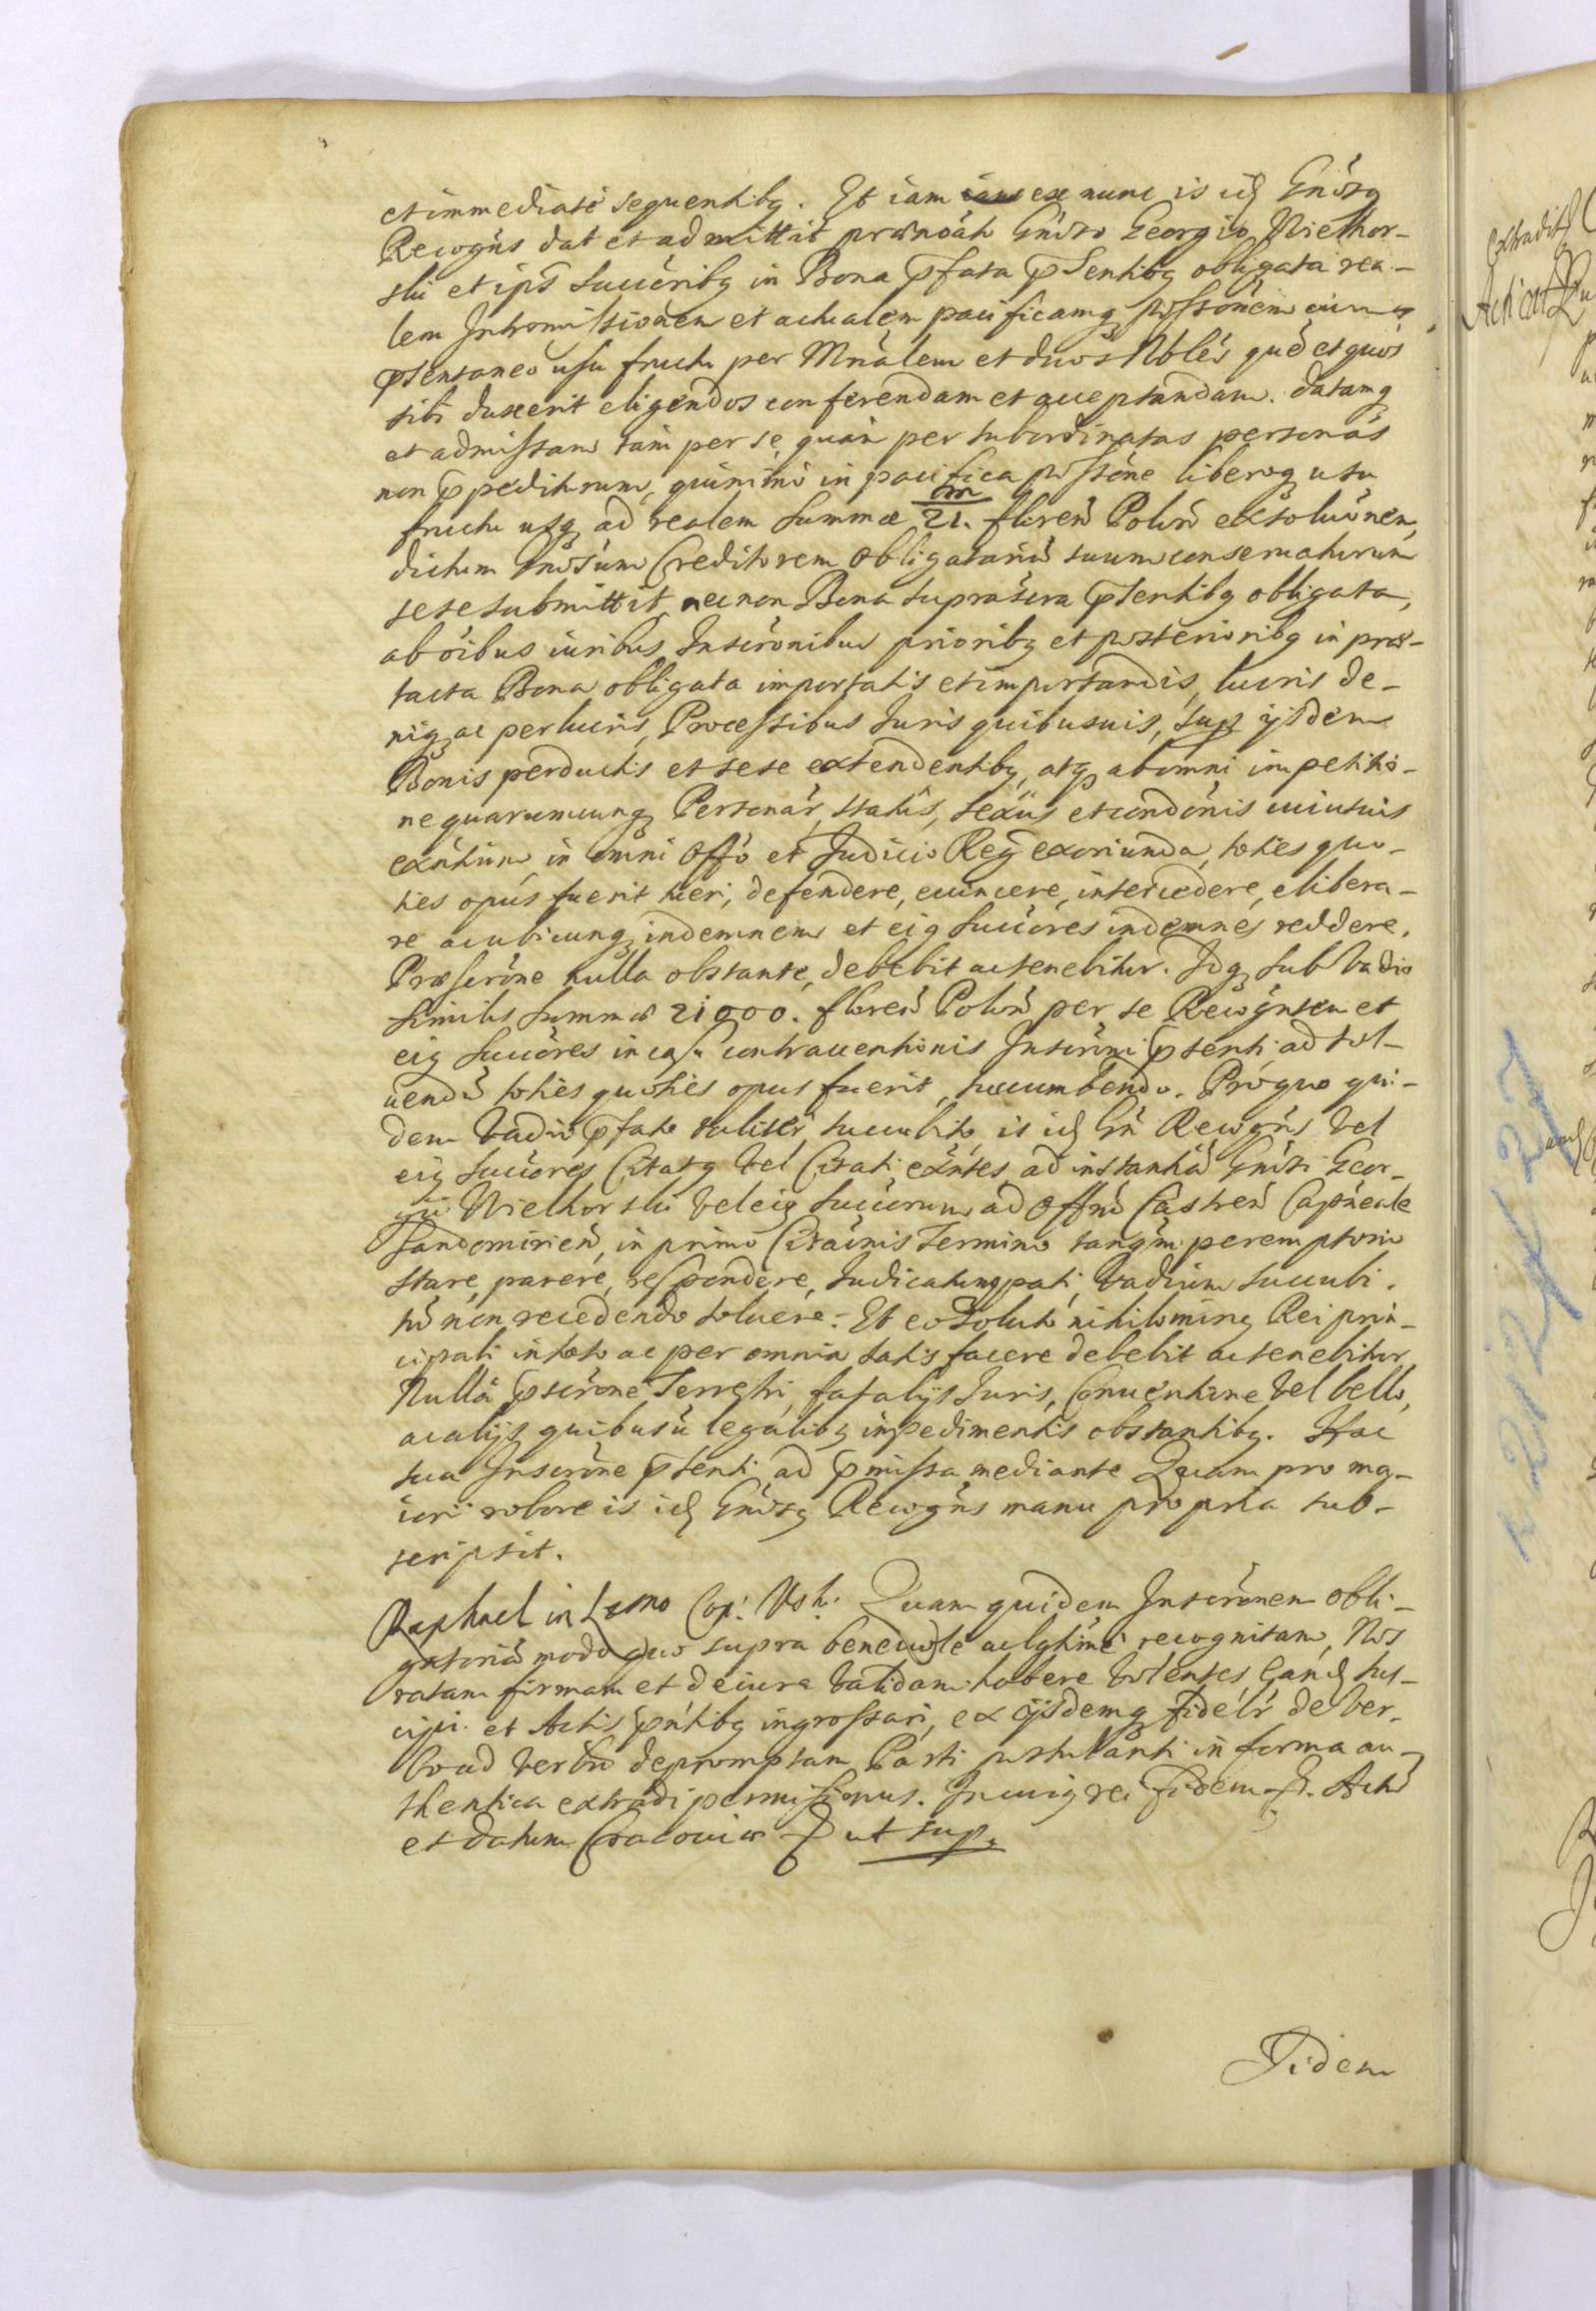 et immediatè sequentibq. Et iam iam ex nunc is id Gnósq
Recogñs dat et admittit prænoáto Gnóso Georgio Wielhor-
ski et ipś Succoribq in Bona pfata psentibq obligata rea-
lem Intromissionem et actualem pacificamq possonem cum
psentaneo usu fructu per Mnálem et duos Nbles qué et quos
sibi duxerit eligendos conferendam et acceptandam. datamq
et admissam tám per se, quàm per subordinatas personas
non ppediturum, quinimo in pacifica possone liberoq usu
fructu usq ad realem Summæ 21.m floreñ Poloñ exsoluonem,
dictum Gnosum Creditorem Obligatariũ suum conseruaturum
sese submittit, necnon Bona suprascra psentibq obligata,
ab oibus iuribus Inscrónibus prioribq et posterioribq in præ-
tacta Bona obligata importatis et importandis, lucris de-
niq ac perlucris, Processibus Iuris quibusuis, sup ijsdem
Bonis perductis et sese extendentibq, atq ab omni impetitio-
ne quarumcunq Personar, status, sexús et condónis cuiusuis
exntium, in omni Offo et Iudicio Reg exoriunda, toties quo-
ties opus fuerit tueri, defendere, euincere, intercedere, elibera-
re ac ubicunq indemnem et eiq Succóres indemnes reddere.
Præscrône nulla obstante, debebit ac tenebitur. Idq sub Vadio
similis Summæ 21000. floreñ Poloñ per se Recognsen et
eiq Succóres in casu contrauentionis Inscróni psenti, ad sol-
uendũ toties quoties opus fuerit, succumbendo. Pro quo qui-
dem Vadio pfato taliter succubito is id Gñ Recogñs Vel
eiq Succores Citatq Vel Citati exntes, ad instantiã Gnósi Geor-
gii Wielhorski Vel eiq Succorum ad Offm Castreñ Capneale
Sandomirień, in primo Citaónis Termino tanqm peremptorio
stare, parere, respondere, Iudicatumq pati, Vadium succubi-
tũ non recedendo soluere. Et eo Soluto nihilominq Rei prin-
cipali in toto ac per omnia satisfacere debebit ac tenebitur,
Nullâ pscrone Terrestri, fatalijs Iuris, Conuentione Vel bello,
ac alijs quibusũ legalibq impedimentis obstantibq. Hac
sua Inscróne psenti ad pmissa mediante Quam pro ma-
iori robore is id Gnosq Recogñs manu propria sub-
scripsit.
Raphael in Quam quidem Inscrónem obli-
gatoriã modo quo supra beneuole ac lgtime recognitam, Nos
ratam firmam et de iure Validam habere Volentes, sus-
cipi et Actis pntibq ingrossari, ex ijsdemq fidelr de Ver-
bo ad Verbũ depromptam Parti postulanti in forma au-
thentica extradi permisimus. In cuiq rei fidem Actũ
et datum Cracouiæ ut sup.
Fidem
Extradit